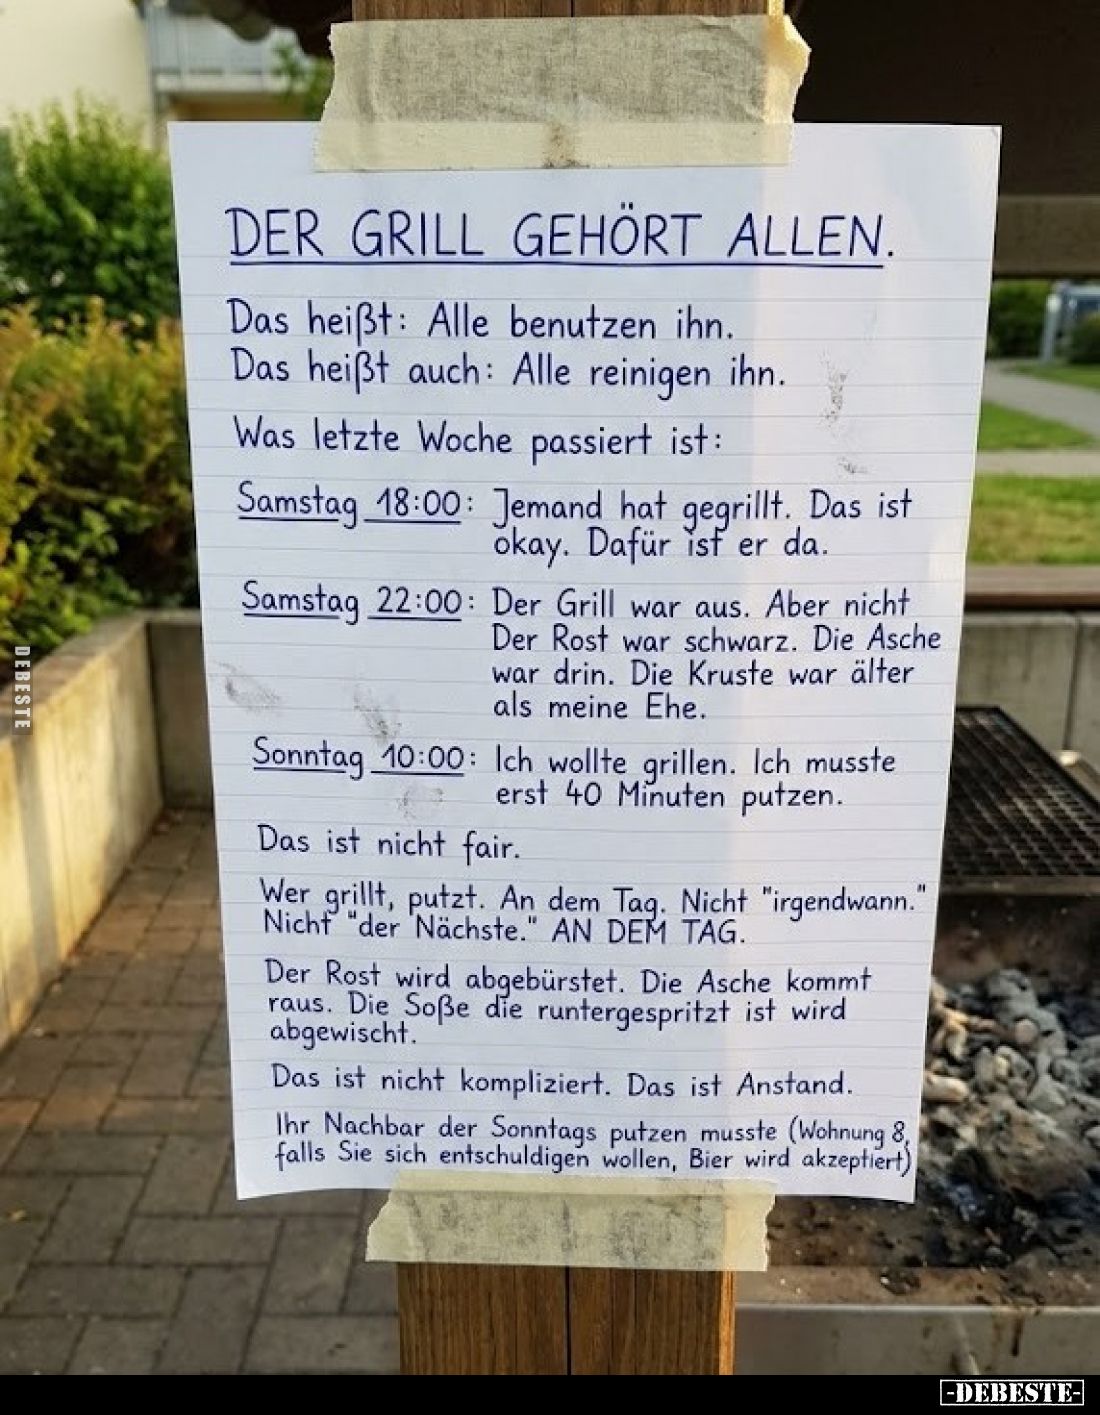 DER GRILL GEHÖRT ALLEN.
Das heißt: Alle benutzen ihn.
Das heißt auch: Alle reinigen ihn.
Was letzte Woche passiert ist:
Samstag 18:00: Jemand hat gegrillt. Das ist
okay. Dafür ist er da.
Samstag 22:00: Der Grill war aus. Aber nicht
Der Rost war schwarz. Die Asche
war drin. Die Kruste war älter
als meine Ehe.
Sonntag 10:00: Ich wollte grillen. Ich musste
erst 40 Minuten putzen.
Das ist nicht fair.
Wer grillt, putzt. An dem Tag. Nicht "irgendwann."
Nicht "der Nächste." AN DEM TAG.
Der Rost wird abgebürstet. Die Asche kommt
raus. Die Soße die runtergespritzt ist wird
abgewischt.
Das ist nicht kompliziert. Das ist Anstand.
Ihr Nachbar der Sonntags putzen musste (Wohnung 8,
falls Sie sich entschuldigen wollen, Bier wird akzeptiert)
DEBESTE
-DEBESTE-